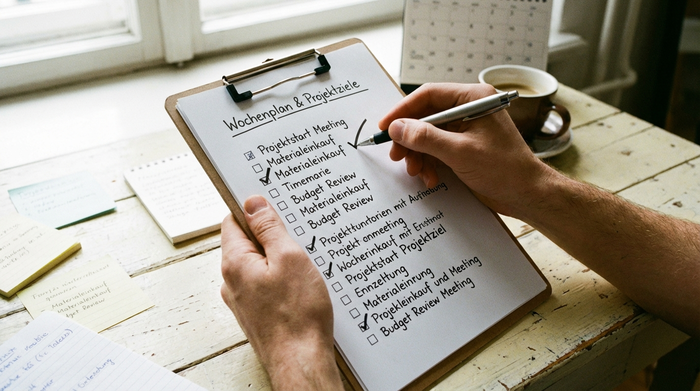 Wochenplan & Projektziele
Projektstart Meeting
Materialeinkauf
Materialeinkauf
Timemarie
Budget Review
Materialeinkauf
Budget Review
Projekttumtorien mit Aufheilung
Projekt onmeeting
Wocherinkauf mit Enstinot
Projektstart Projektziel
Ennzettung
Materialeinrung
Projekleinkauf und Meeting
Budget Review Meeting
Materialeinkauf
Budget Review